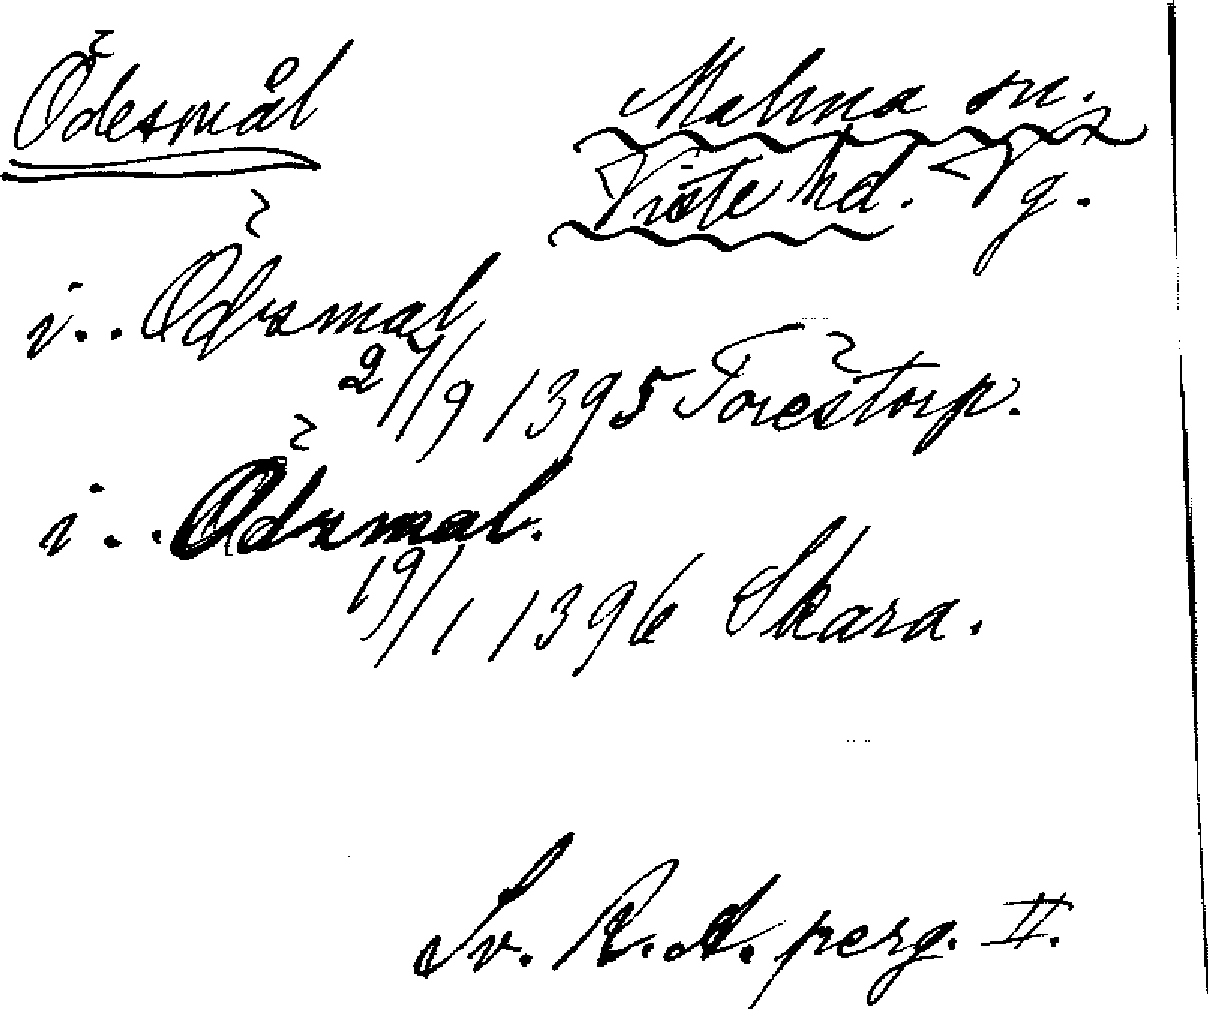 Ödesmål
Malma sn.
Viste hd. Vg.
i.. Ödzmal
27/9 1395 Forestorp.
i.. Ödzmal.
19/1 1396 Skara.
Sv. R.A. perg. II.